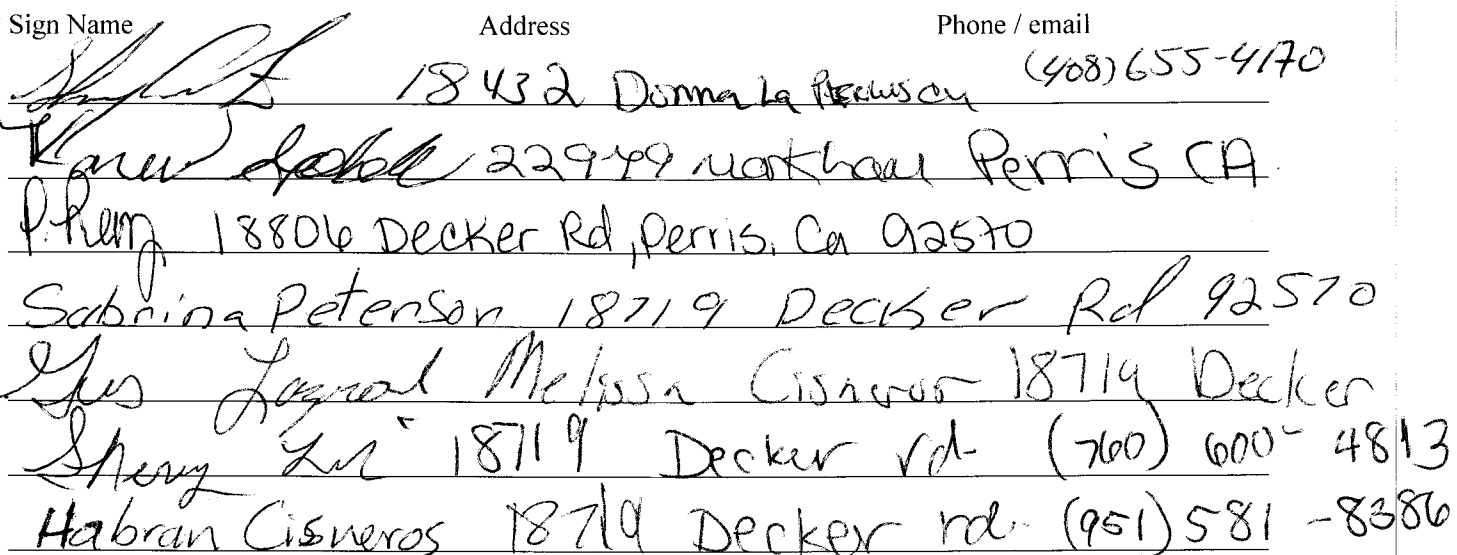 Sign Name Address Phone / email
18432 Donna La (408) 655-4170
Karen 22949 Markham Perris CA.
P. Remy 18806 Decker Rd, Perris, Ca 92570
Sabrina Peterson 18719 Decker Rd 92570
Gus Melissa Cisneros 18719 Decker
Sherry 18719 Decker rd (760) 600-4813
Habran Cisneros 18719 Decker rd (951) 581-8386